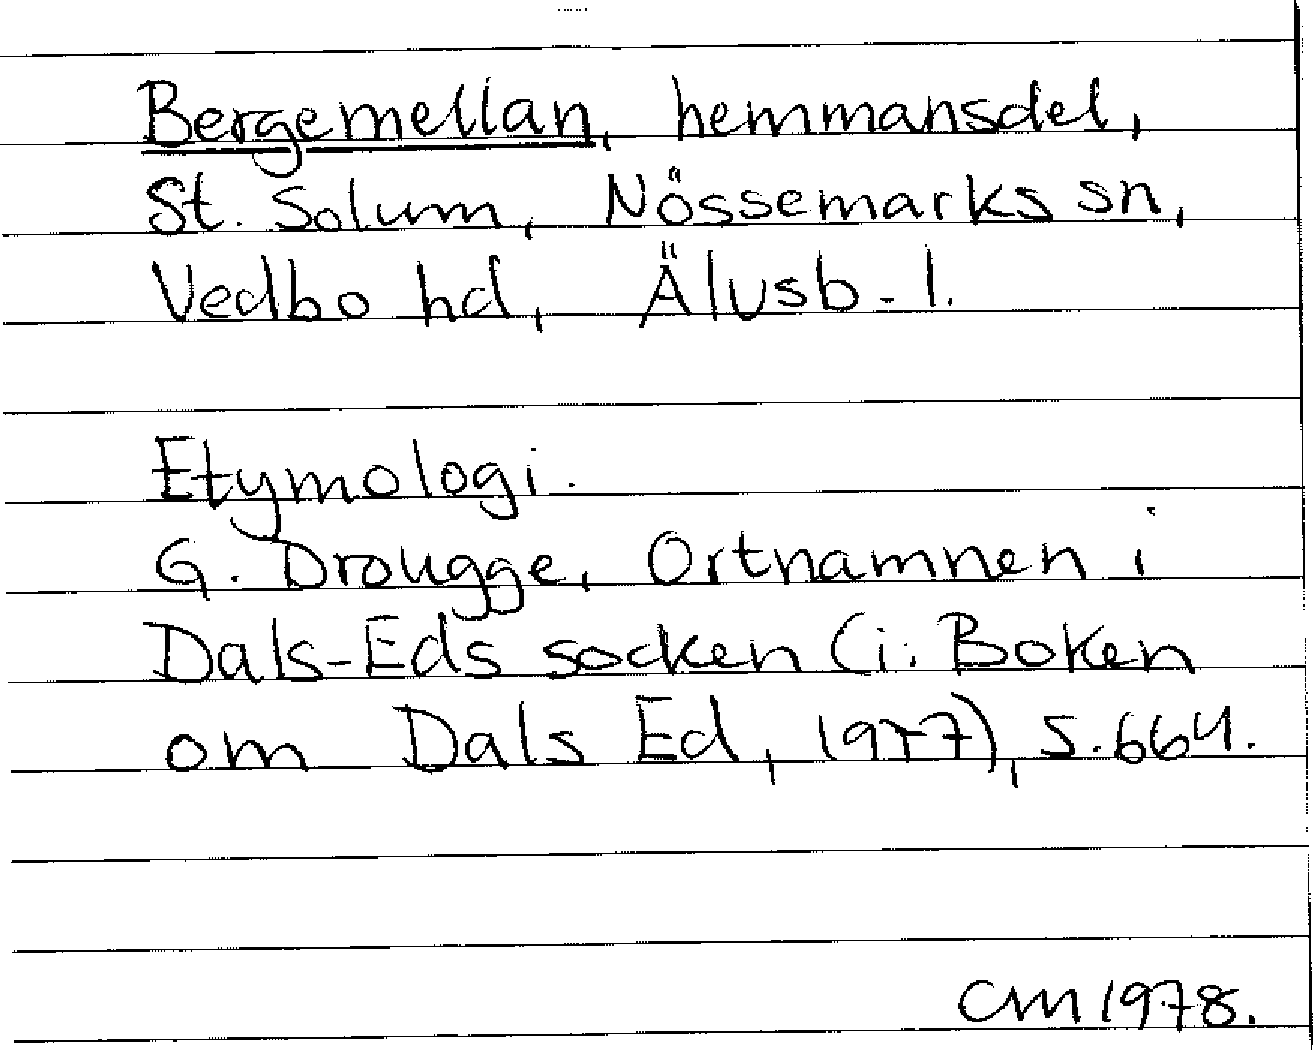 Bergemellan, hemmansdel,
St. Solum, Nössemarks sn,
Vedbo hd, Älvsb. l.
Etymologi.
G. Drougge, Ortnamnen i
Dals-Eds socken (i: Boken
om Dals Ed, 1977), s. 664.
CM 1978.